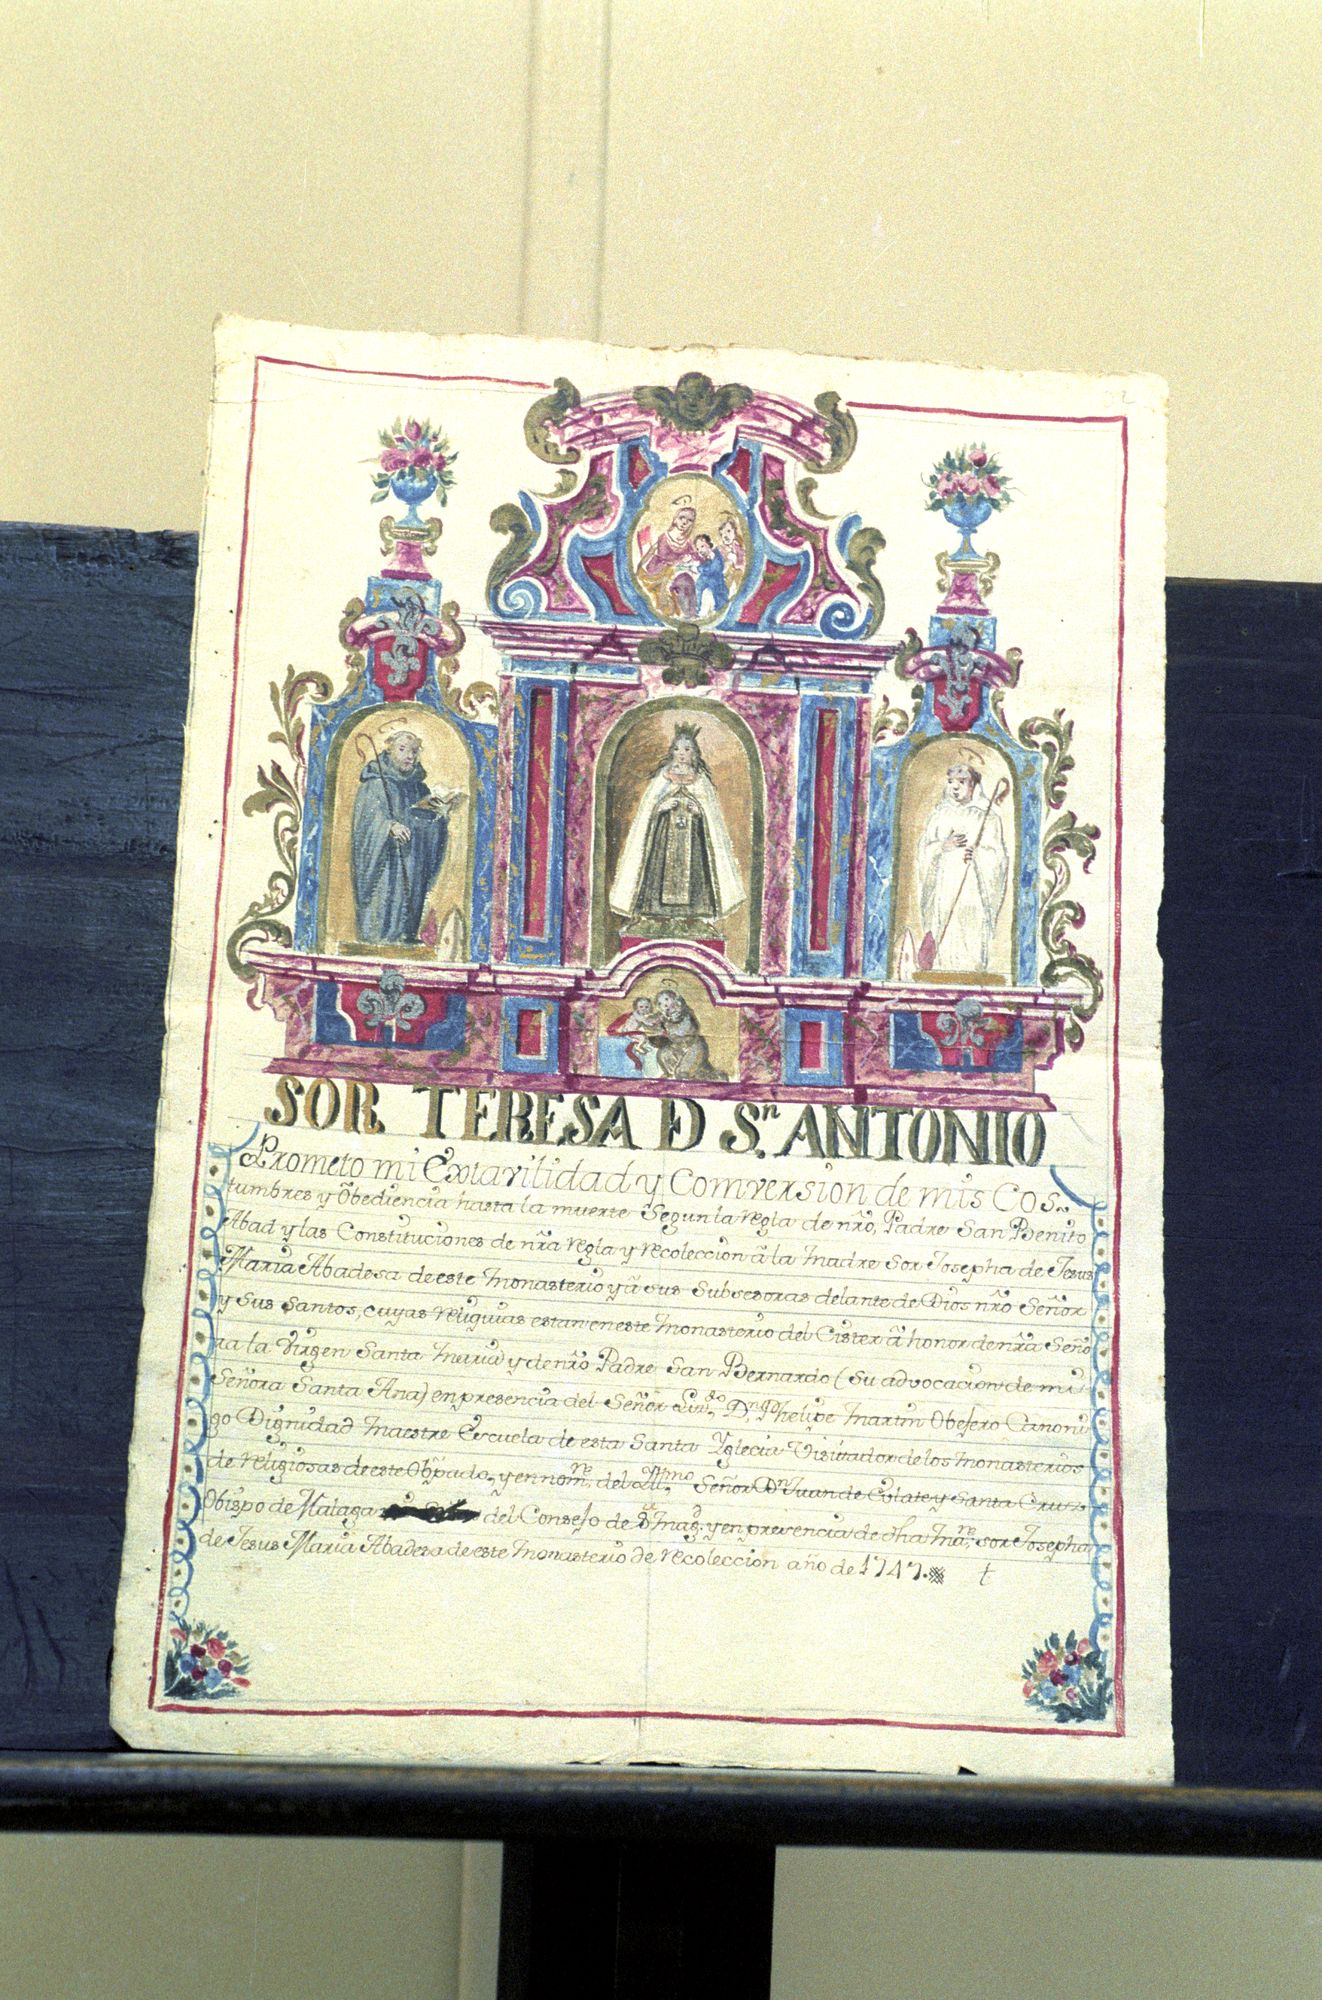 SOR TERESA Đ Sn. ANTONIO
Prometo mi Extavilidad y Comversion de mis Cos-
tumbres y Obediencia hasta la muerte Segun la regla de nro, Padre San Benito
Abad y las Constituciones de nra regla y recoleccion â la Madre Sor Josepha de Jesus
Maria Abadesa de este Monasterio y â sus Subsesoras delante de Dios nro Señor
y Sus Santos, cuyas reliquias estan en este Monasterio del Cister â honor de nra Seño
ra la Virgen Santa Maria y de nro Padre San Bernardo (Su advocacion de mi
Señora Santa Ana) en presencia del Señor Lizdo. Dn. Phelipe Martin Obejero Canoni
go Dignidad Maestre Escuela de esta Santa Yglecia Visitador de los Monasterios
de religiosas de este Obpado, y en nomre. del Yltmo Señor Dn Juan de Eulate y Santa Cruz
Obispo de Malaga del Consejo de S. Mag. y en precencia de dha Me., sor Josepha
de Jesus Maria Abadesa de este Monasterio de recoleccion año de 1747.